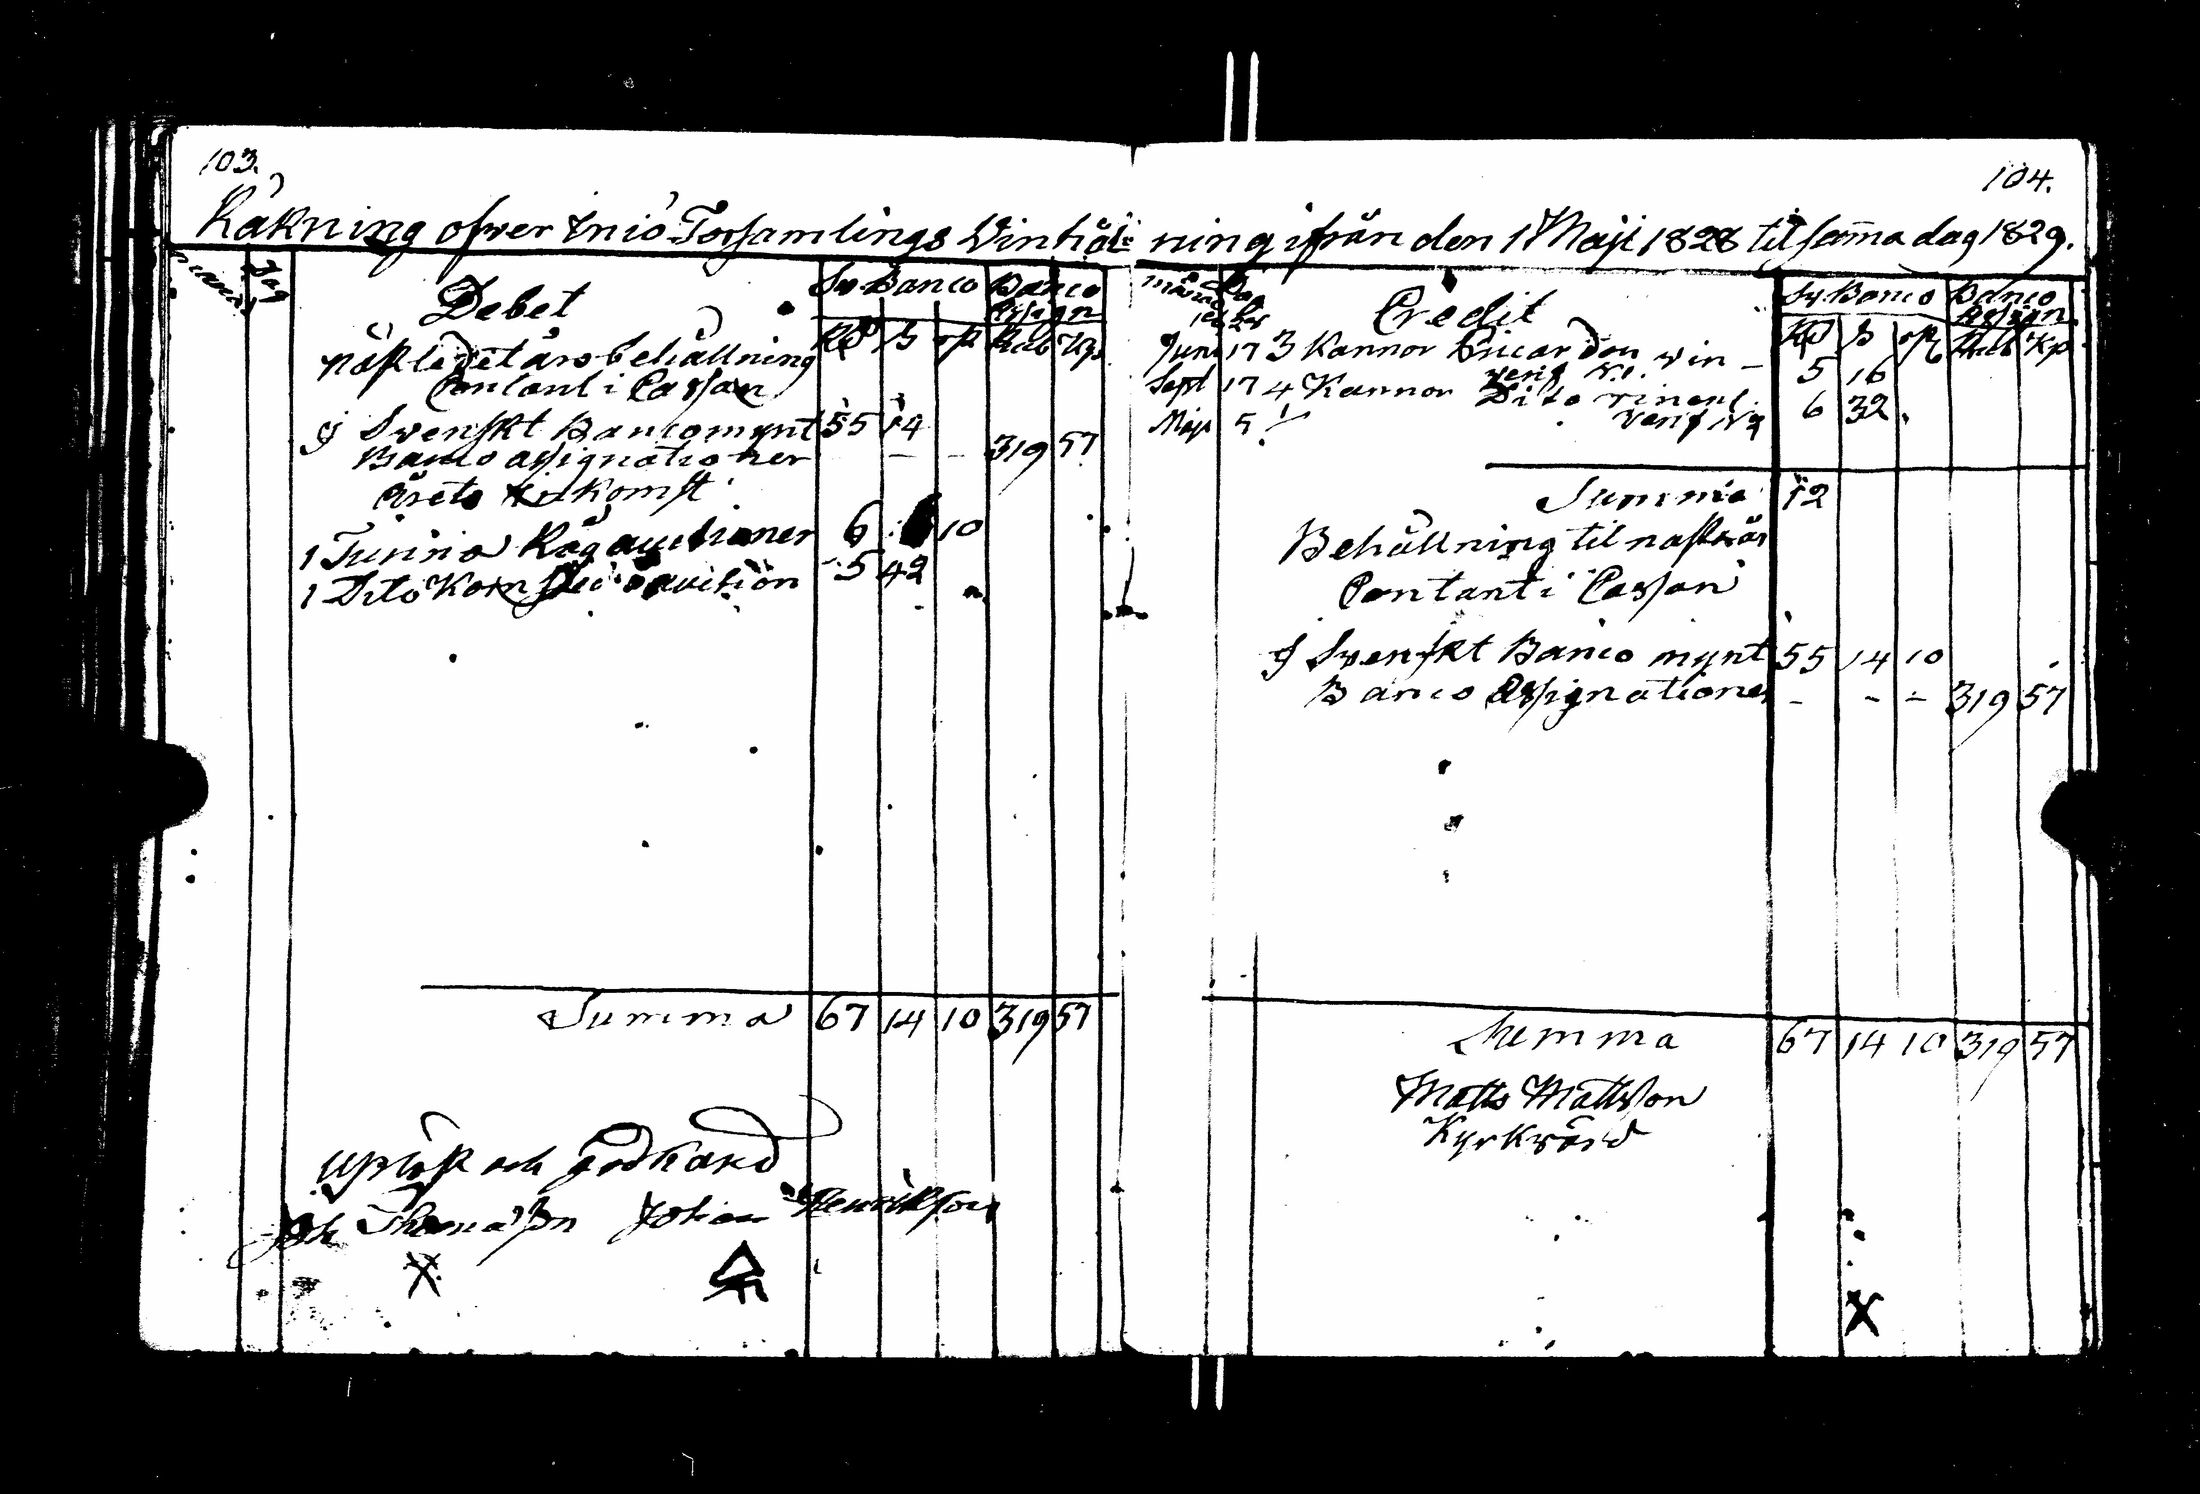 103.
104.
Räkning öfver Iniö Församlings Vinhåll= ning ifrån den 1 Maji 1828 til sama dag 1829.
månad Dag
Debet
Sv Banco Banco Assign
Rd s rst Rub Kp
näst ledet års behållning
Contant i Cassan
J Svenskt Bancomynt 55 14
Banco assignationer - - 319 57
Årets Inkomst
1 Tunna Råg auctioner 6 10
1 Dito Korn auction 5 42
Summa 67 14 10 319 57
Upläst och godkänd
Joh Thomasson Johan Henriksson
X
månad Dag
Credit
Sv. Banco Banco Assign.
Rd s rst Rub Kp
Juni 17 3 Kannor vin -
verif N:1 5 16
Sept 17 4 Kannor Dito
Maji 5 verif N2 6 32
Summa 12
Behållning til nästa år
Contant i Cassan
J Svenskt Banco mynt 55 14 10
Banco Assignationer - - - 319 57
Summa 67 14 10 319 57
Matts Mattsson
Kyrkvärd
X